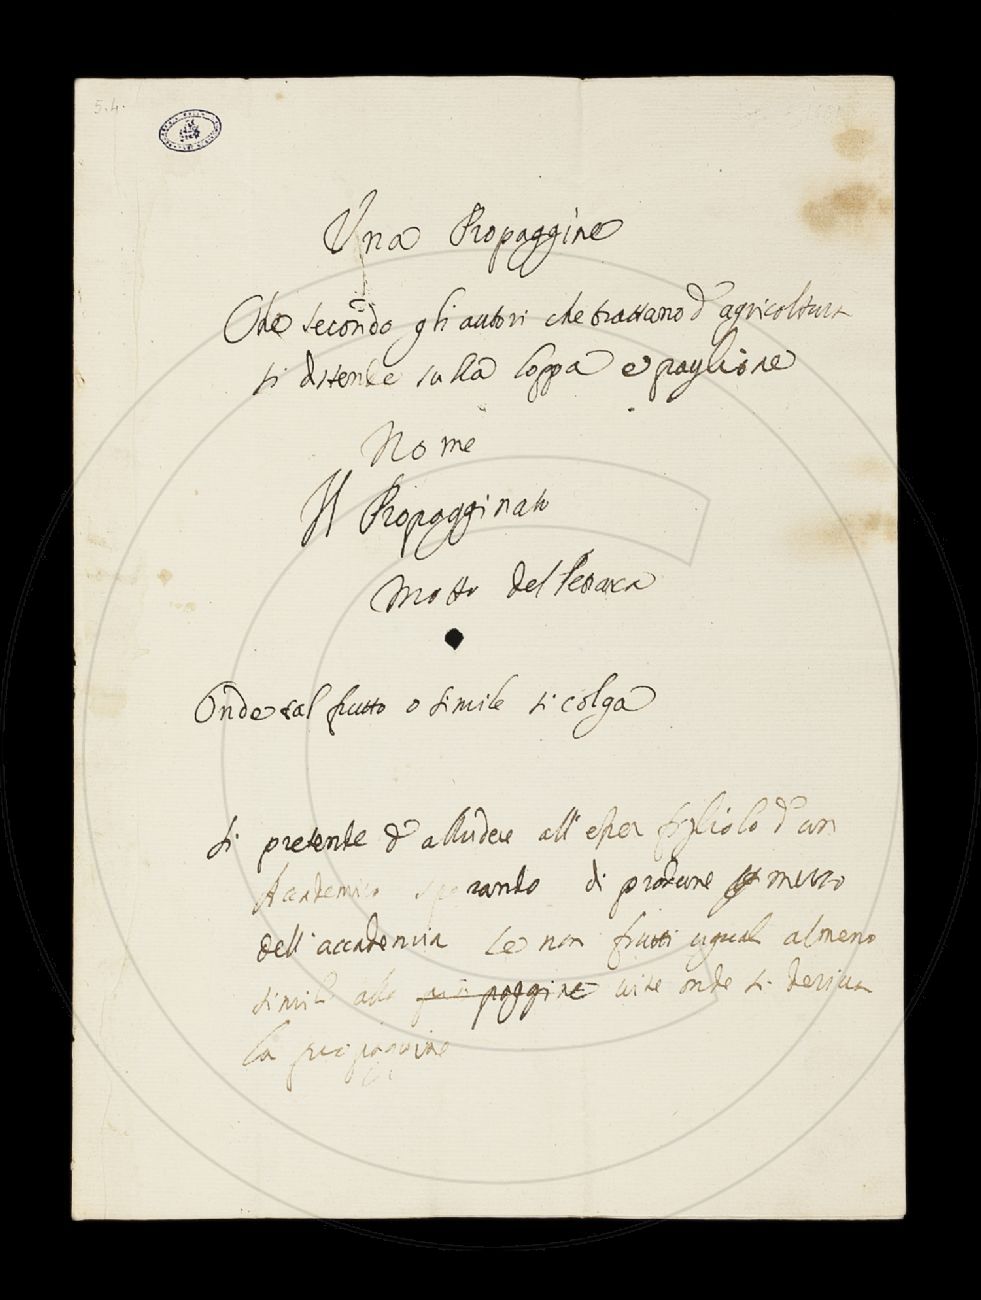 5.4.
Una Propaggine
Che secondo gli autori che trattano d'agricoltura
si distende sulla loppa e paglione
Nome
Il Propagginato
Motto del Petrarca
Onde tal frutto o simile si colga
Si pretende d'alludere all'esser figliolo d'un
Accademico sperando di produrre mezzo
dell'accademia se non frutti uguali almeno
simili alla vite onde si deriva
la propaggine